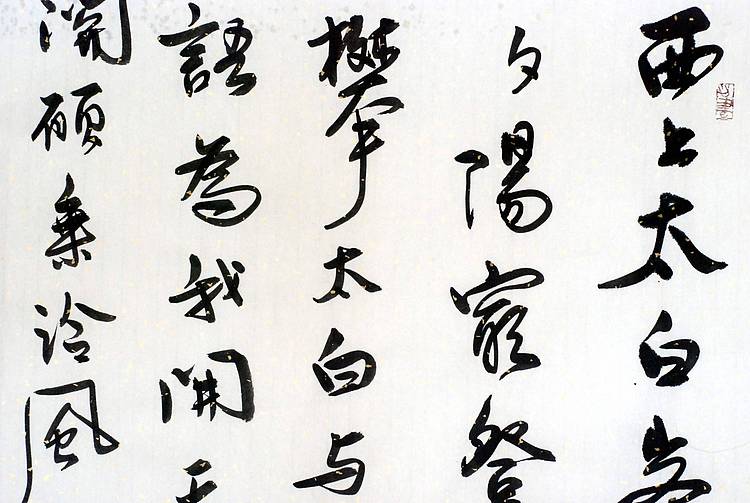 西上太白
夕陽窮登
攀太白与
語為我開天
關願乘泠風